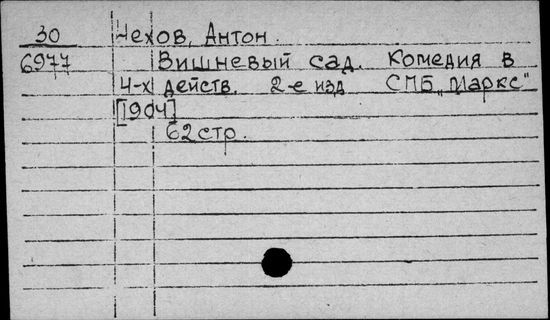 30 Чехов, Антон.
6977 Вишневый сад. Комедия в
4-х действ. 2-е изд СПБ „Маркс"
[1904]
62 стр.